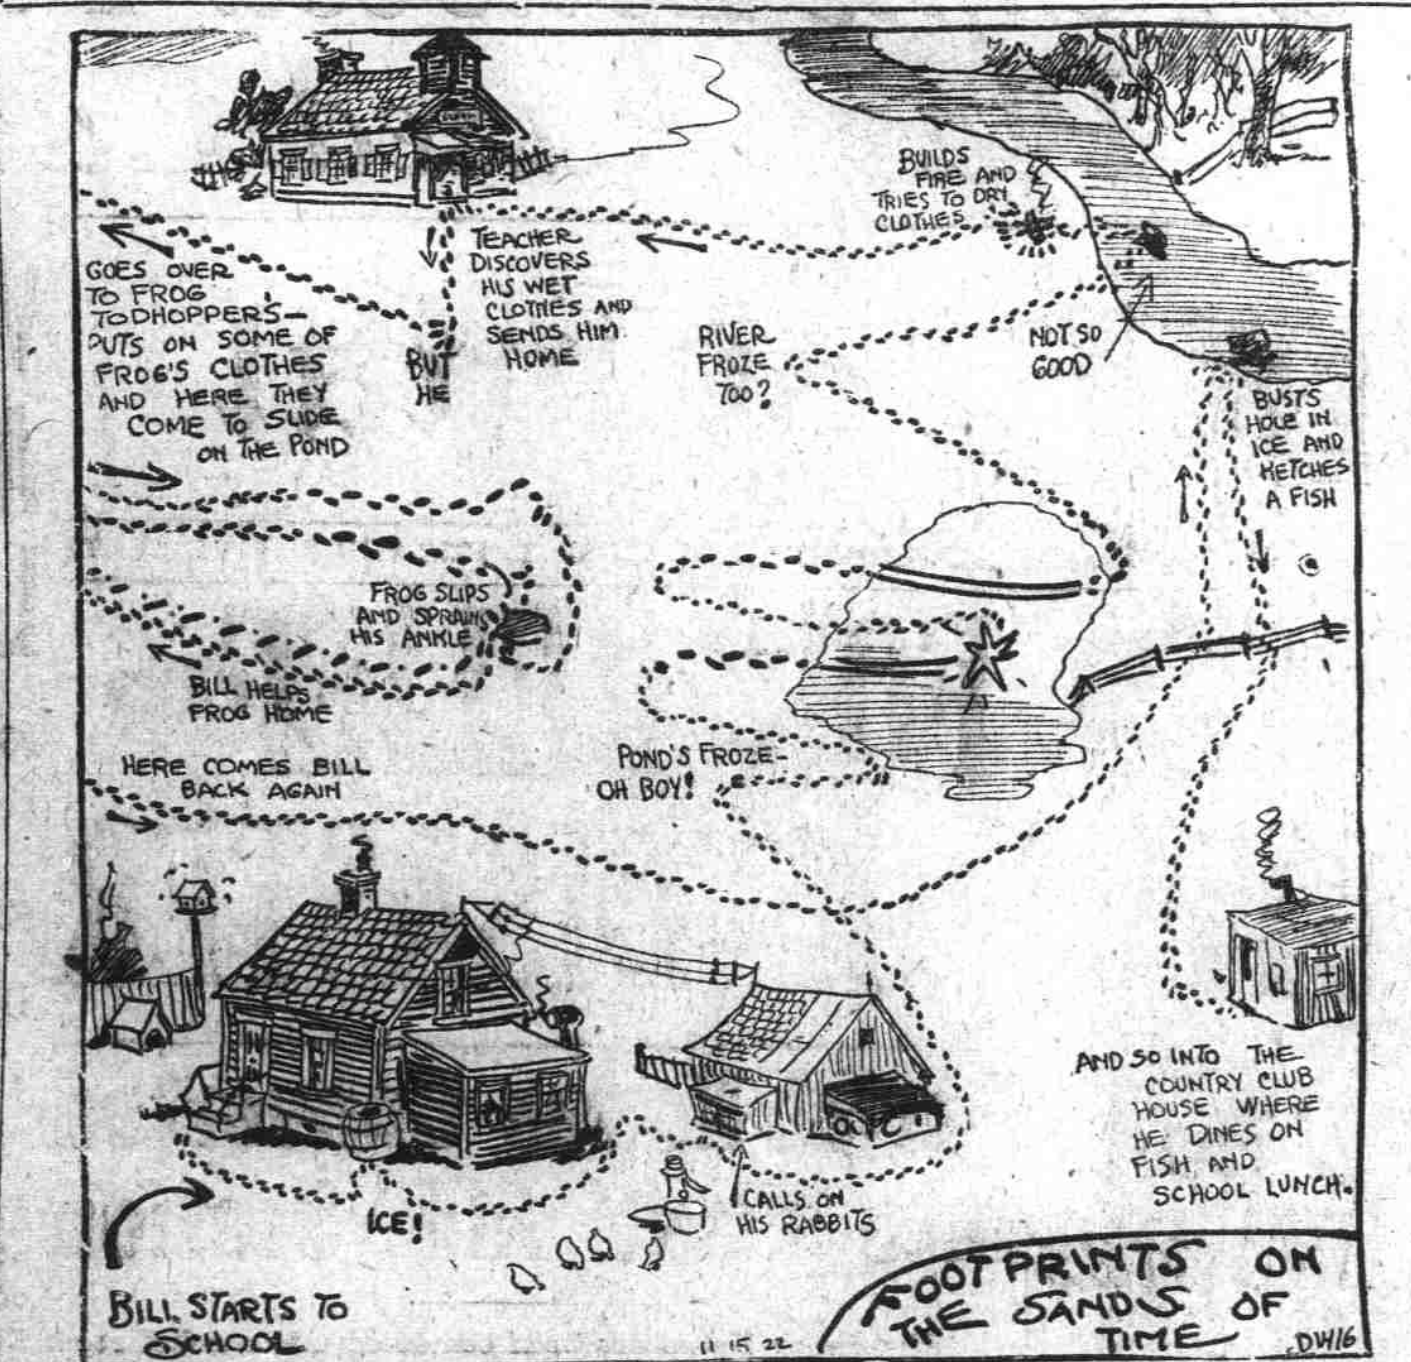 BILL STARTS TO
SCHOOL
ICE!
CALLS ON
HIS RABBITS
POND'S FROZE-
OH BOY!
RIVER
FROZE
TOO?
NOT SO
GOOD
BUILDS
FIRE AND
TRIES TO DRY
CLOTHES
TEACHER
DISCOVERS
HIS WET
CLOTHES AND
SENDS HIM
HOME
BUT
HE
GOES OVER
TO FROG
TODHOPPER'S—
PUTS ON SOME OF
FROG'S CLOTHES
AND HERE THEY
COME TO SLIDE
ON THE POND
FROG SLIPS
AND SPRAINS
HIS ANKLE
BILL HELPS
FROG HOME
HERE COMES BILL
BACK AGAIN
BUSTS
HOLE IN
ICE AND
KETCHES
A FISH
AND SO INTO THE
COUNTRY CLUB
HOUSE WHERE
HE DINES ON
FISH AND
SCHOOL LUNCH.
FOOTPRINTS ON
THE SANDS OF
TIME
11 15 22